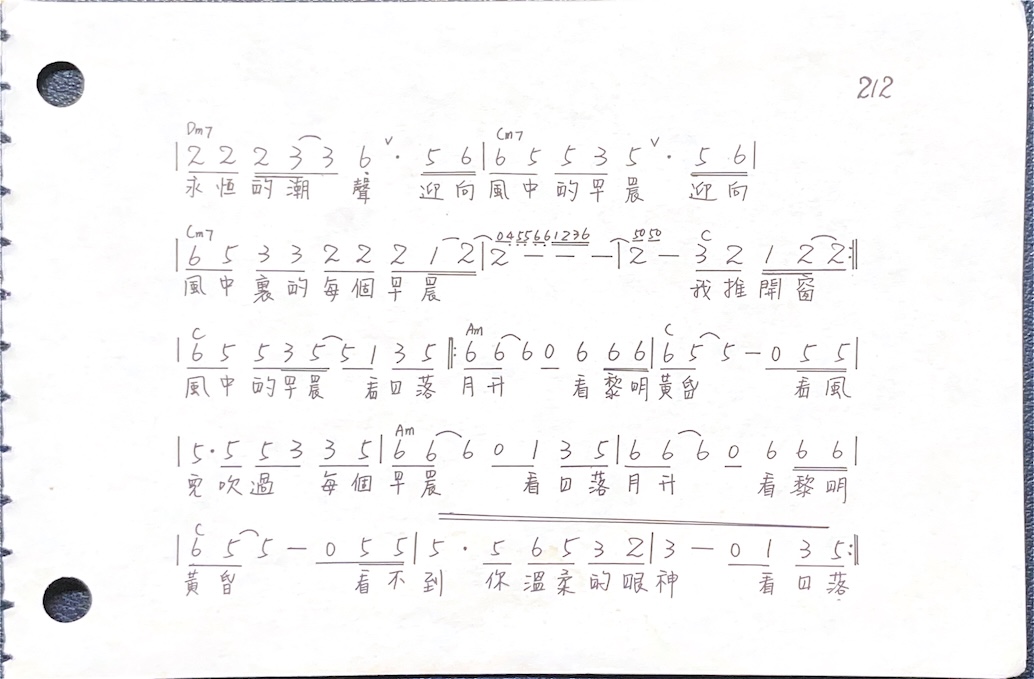 212
Dm7 Cm7
|2 2 2 3 3 6 ˅· 5 6|6 5 5 3 5 ˅· 5 6|
永恒的潮 聲 迎向風中的早晨 迎向
Cm7 0455661236 5050 C
|6 5 3 3 2 2 2 1 2|2 - - -|2 - 3 2 1 2 2:‖
風中裏的每個早晨 我推開窗
C Am C
|6 5 5 3 5 5 1 3 5‖:6 6 6 0 6 6 6|6 5 5 - 0 5 5|
風中的早晨 看日落月升 看黎明黃昏 看風
Am
|5·5 5 3 3 5|6 6 6 0 1 3 5|6 6 6 0 6 6 6|
兒吹過 每個早晨 看日落月升 看黎明
C
|6 5 5 - 0 5 5|5 · 5 6 5 3 2|3 - 0 1 3 5:‖
黃昏 看不到 你溫柔的眼神 看日落